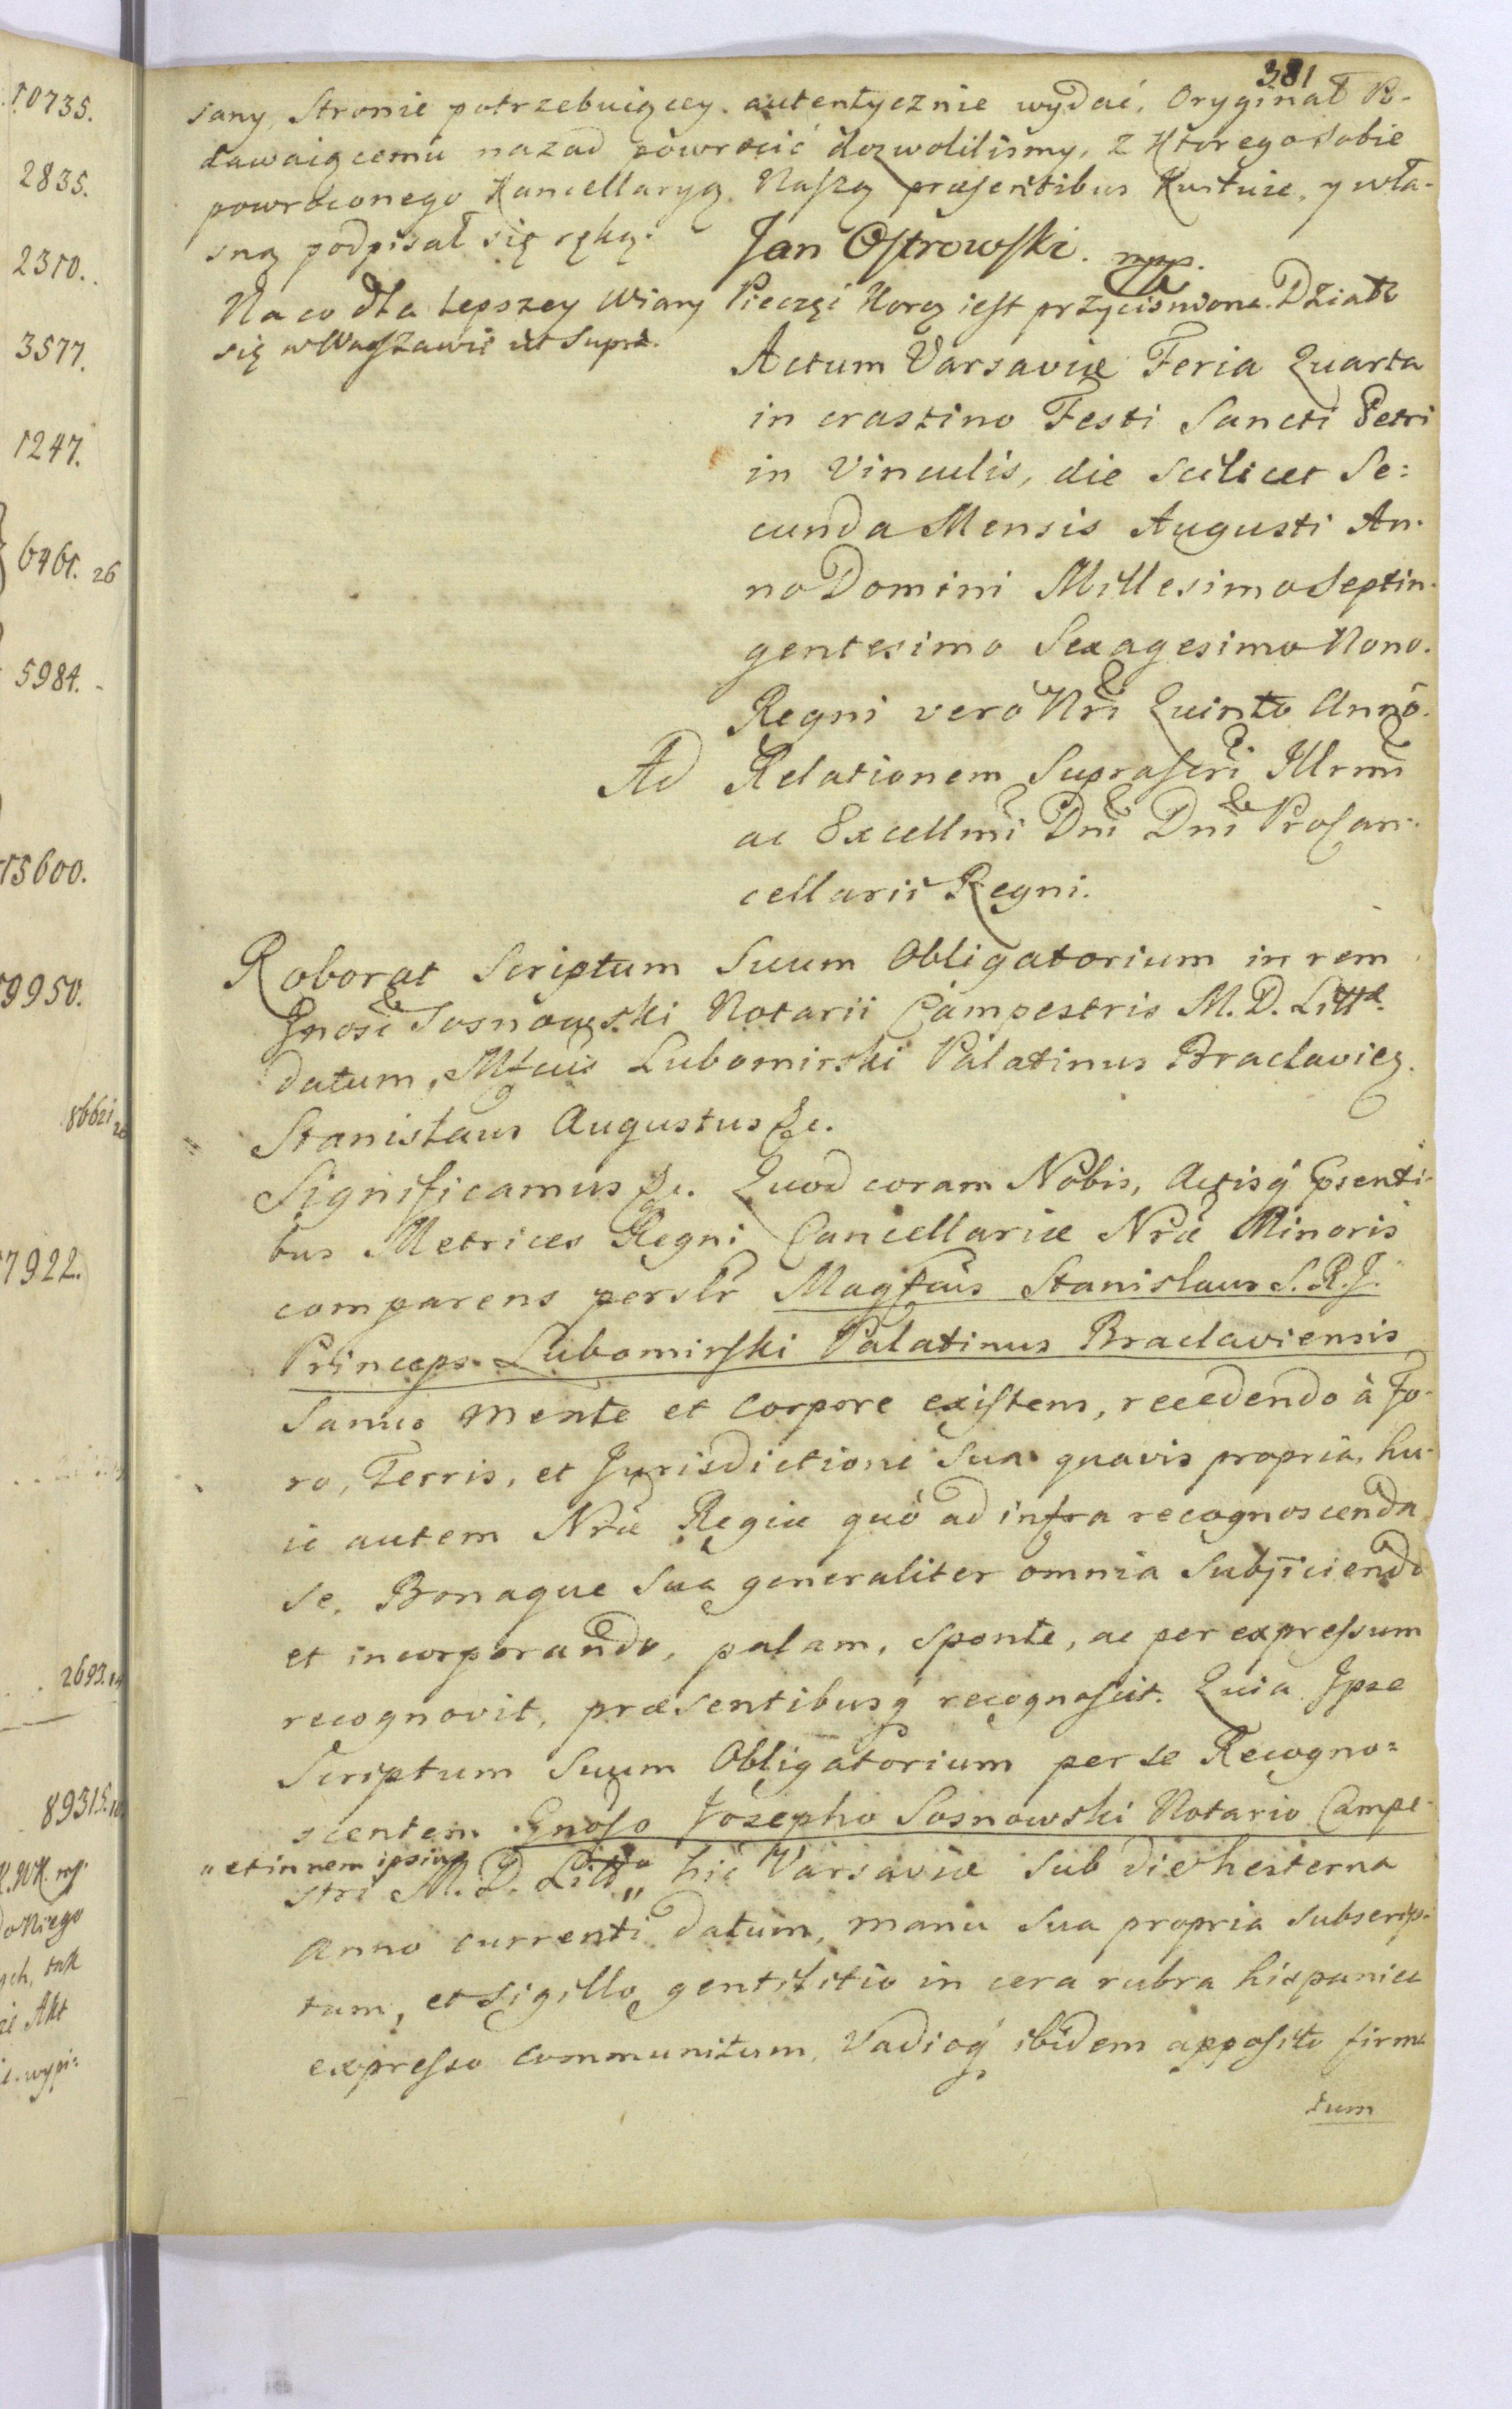 381
sany, Stronie potrzebuiącey autentycznie wydać, Oryginał Po-
dawaiącemu nazad powrocić dozwolilismy, z Ktorego sobie
powroconego Kancellaryą Naszą præsentibus Kwituie, y wła-
sną podpisał się ręką. Jan Ostrowski. mpp.
Na co dla lepszey Wiary Pieczęć Korą iest przycisniona. Działo
się w Warszawie ut Supra.
Actum Varsaviæ Feria Quarta
in crastino Festi Sancti Petri
in Vinculis, die scilicet Se=
cunda Mensis Augusti An-
no Domini Millesimo Septin-
gentesimo Sexagesimo Nono.
Regni verò Nri Quinto Anno.
Ad Relationem Suprascri Illrmi
ac Excellmi Dni Dni ProCan-
cellarii Regni.
Roborat Scriptum Suum Obligatorium in rem
Gnosi Sosnowski Notarii Campestris M. D. Littæ
datum, Mfcus Lubomirski Palatinus Braclavien.
Stanislaus Augustus &c.
Significamus &c. Quod coram Nobis, Actisq́ psenti-
bus Metrices Regni Cancellariæ Nræ Minoris
comparens perslr Magfcus Stanislaus S. R. J.
Princeps Lubomirski Palatinus Braclaviensis
Sanus mente et Corpore existens, recedendo à Fo-
ro, Terris, et Jurisdictione Sua quavis propria, hu-
ic autem Nræ Regiæ quò ad infra recognoscenda
se, Bonaque Sua generaliter omnia Subjiciendo
et incorporando, palam, sponte, ac per expressum
recognovit, præsentibusq́ recognoscit. Quia Ipse
Scriptum Suum Obligatorium per se Recogno=
scentem Gnoso Jozepho Sosnowski Notario Campe-
" et in rem ipsius
stri M. D. Litt " hic Varsaviæ sub die hesterna
Anno currenti datum, manu sua propria subscrip-
tum, et Sigillo gentilitio in cera rubra hispanica
expresso communitum, Vadioq́ ibidem apposito firma
tum
10735.
2835.
2310.
3577.
1247.
6461. 26
5984.
15600.
7922.
2693.
89315.